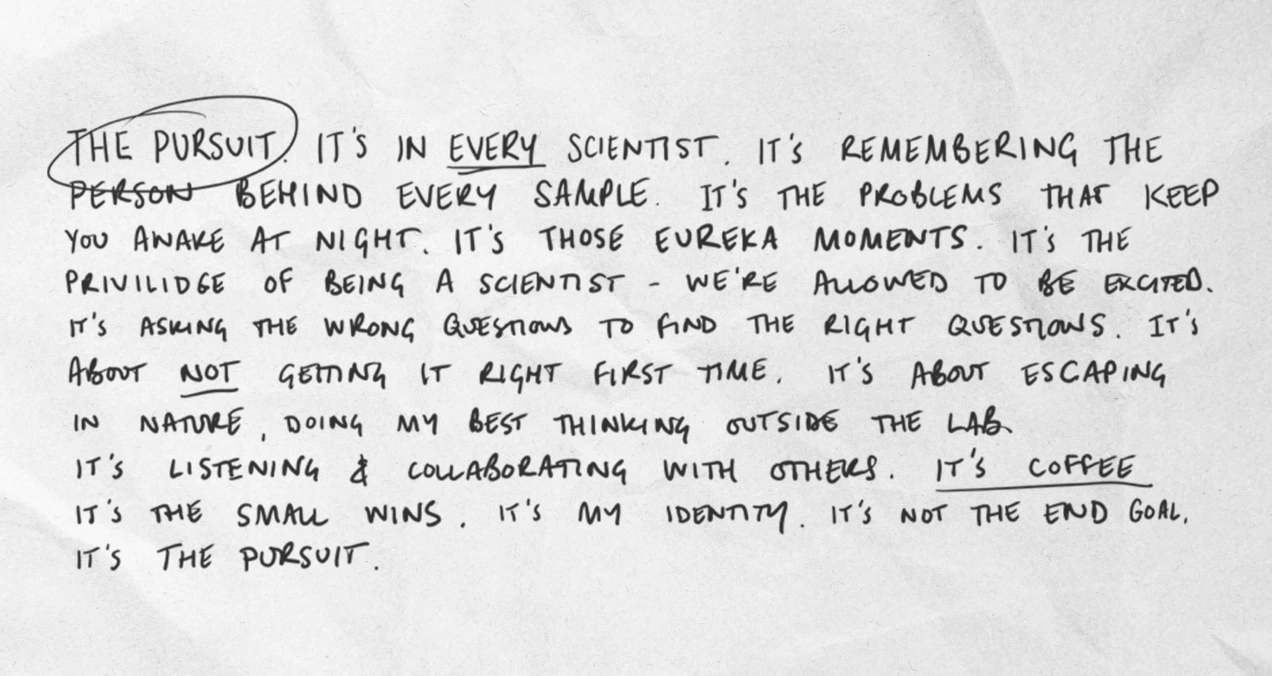 THE PURSUIT. IT'S IN EVERY SCIENTIST. IT'S REMEMBERING THE
PERSON BEHIND EVERY SAMPLE. IT'S THE PROBLEMS THAT KEEP
YOU AWAKE AT NIGHT. IT'S THOSE EUREKA MOMENTS. IT'S THE
PRIVILIDGE OF BEING A SCIENTIST - WE'RE ALLOWED TO BE EXCITED.
IT'S ASKING THE WRONG QUESTIONS TO FIND THE RIGHT QUESTIONS. IT'S
ABOUT NOT GETTING IT RIGHT FIRST TIME. IT'S ABOUT ESCAPING
IN NATURE, DOING MY BEST THINKING OUTSIDE THE LAB.
IT'S LISTENING & COLLABORATING WITH OTHERS. IT'S COFFEE
IT'S THE SMALL WINS. IT'S MY IDENTITY. IT'S NOT THE END GOAL.
IT'S THE PURSUIT.